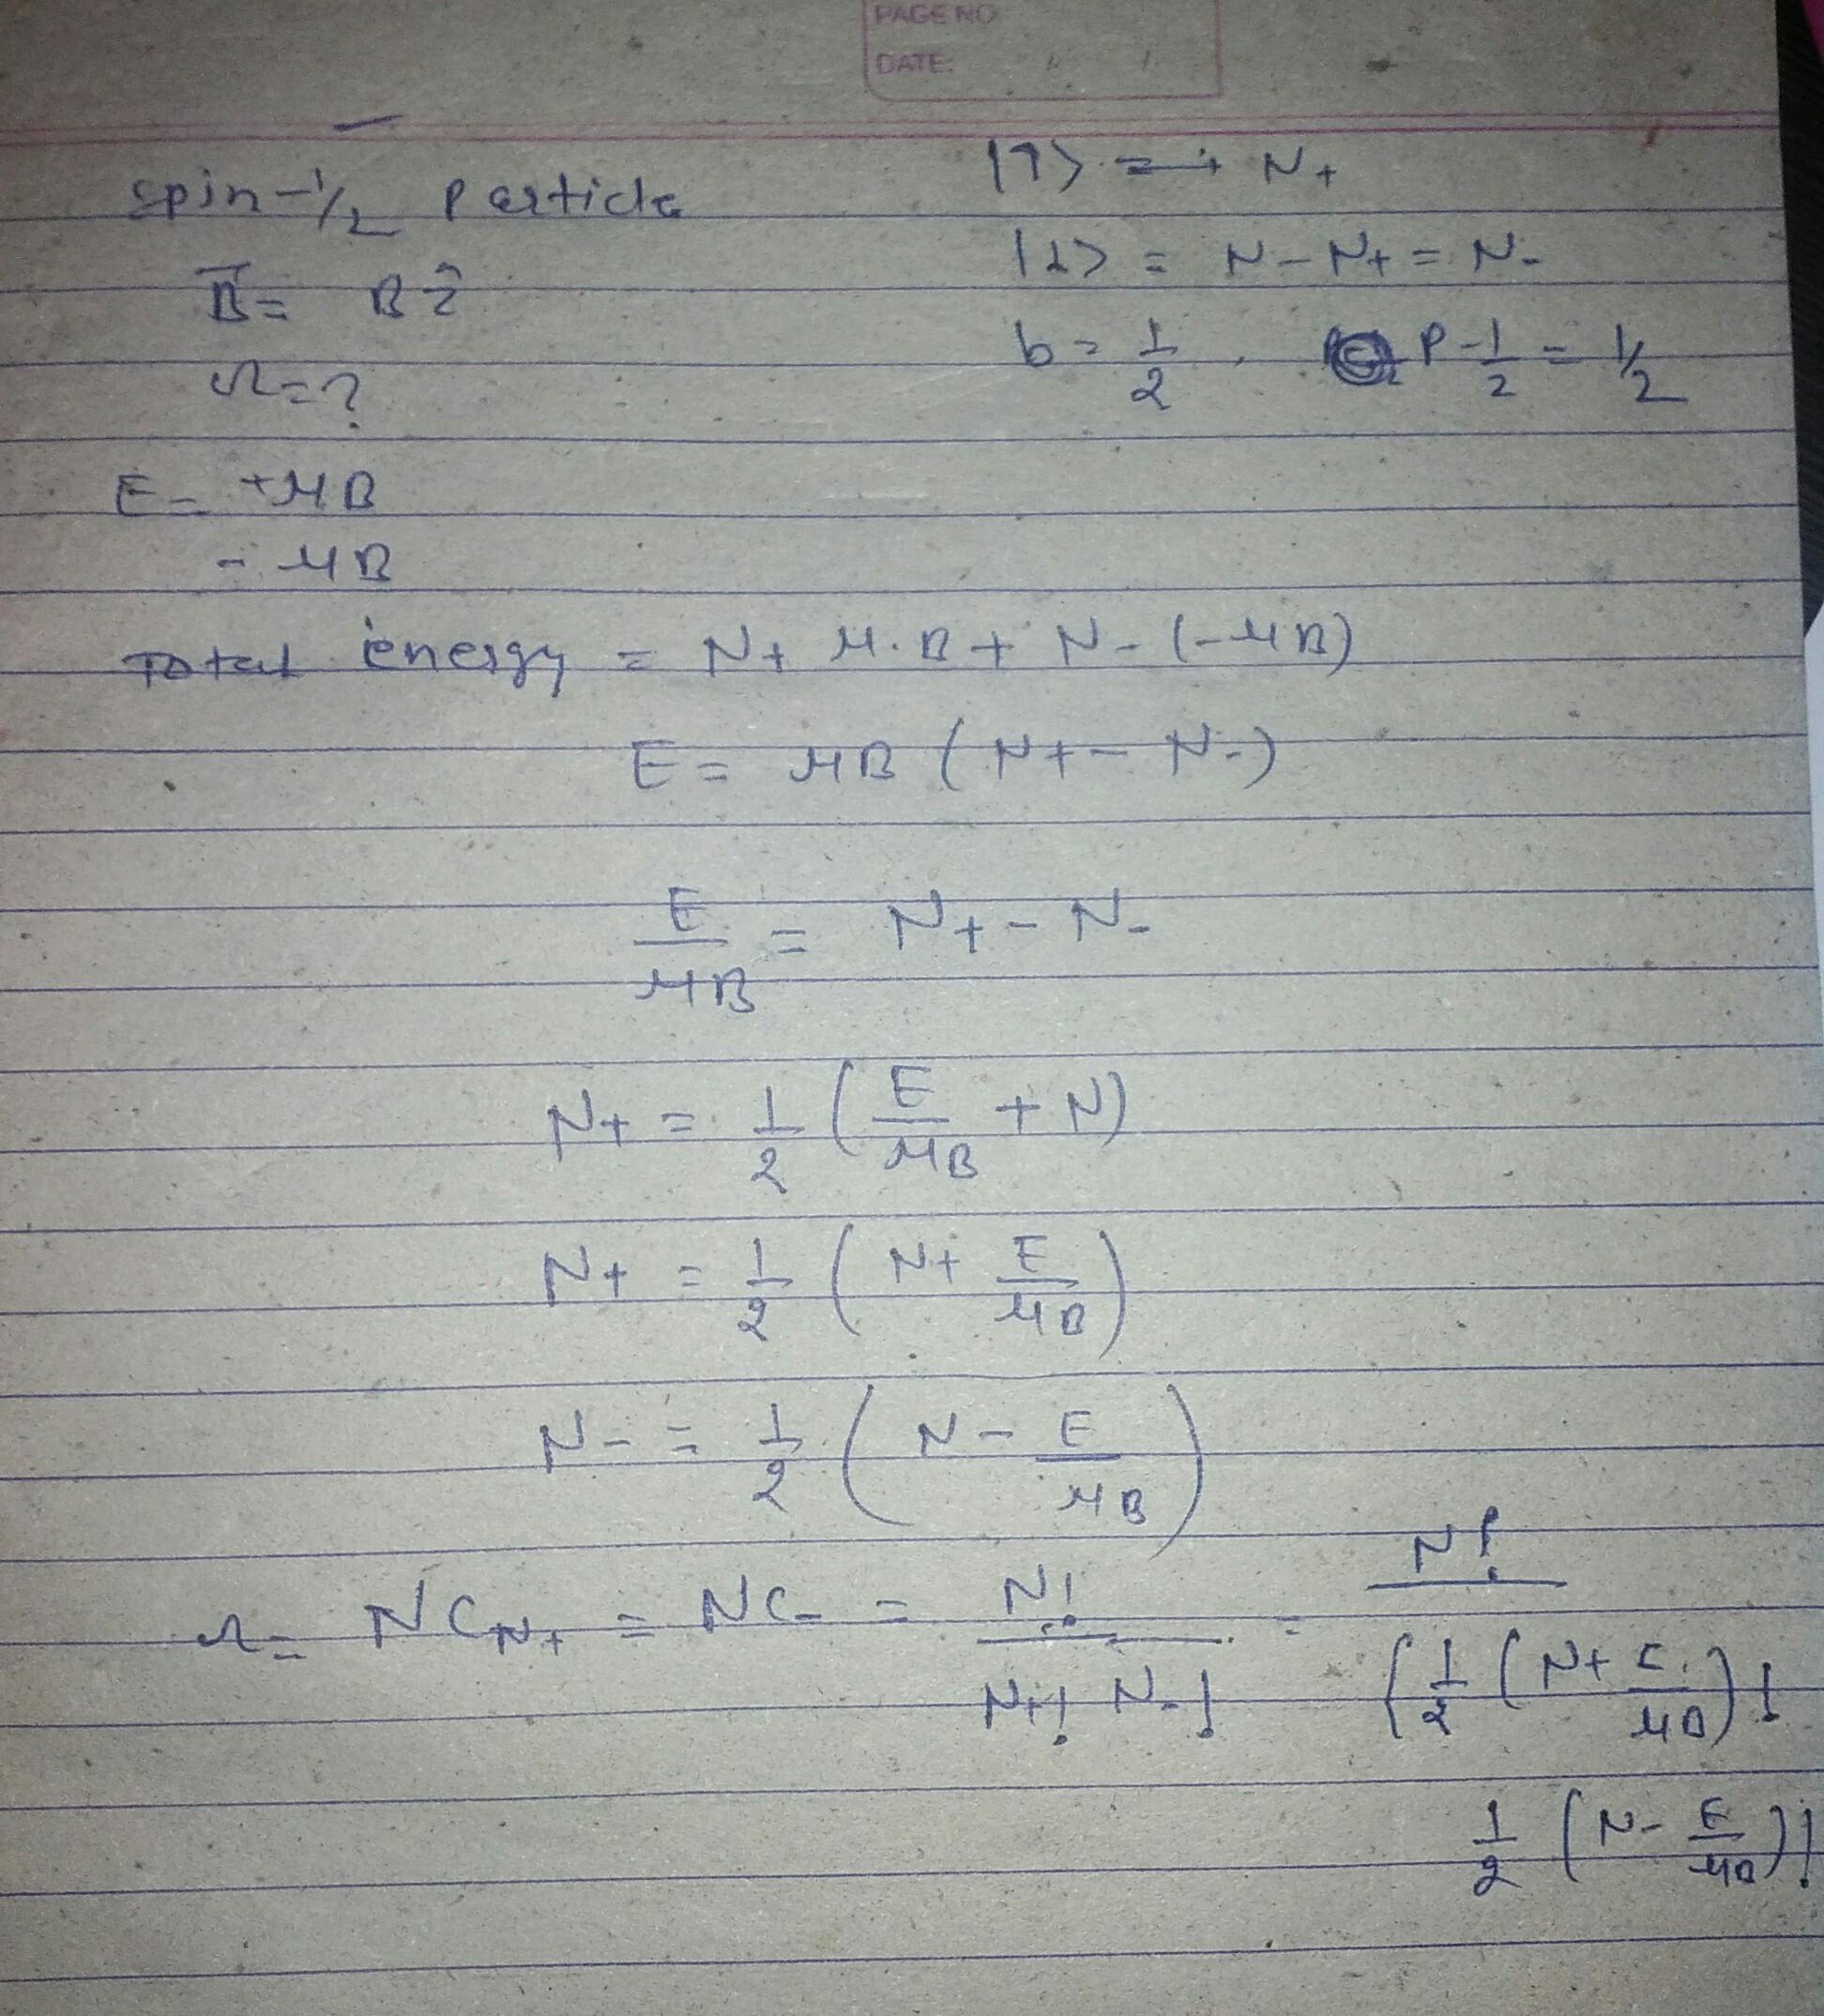 PAGE NO
DATE:
spin-1/2 particle
|↑> = + N+
B⃗ = B ẑ
|↓> = N - N+ = N-
Ω = ?
b = 1/2, P-1/2 = 1/2
E = +μB
- μB
Total energy = N+ μ.B + N- (-μB)
E = μB (N+ - N-)
E/μB = N+ - N-
N+ = 1/2 (E/μB + N)
N+ = 1/2 (N + E/μB)
N- = 1/2 (N - E/μB)
Ω = NC N+ = NC- = N!/N+! N-! = N!/{1/2 (N + E/μB)!
1/2 (N - E/μB)!